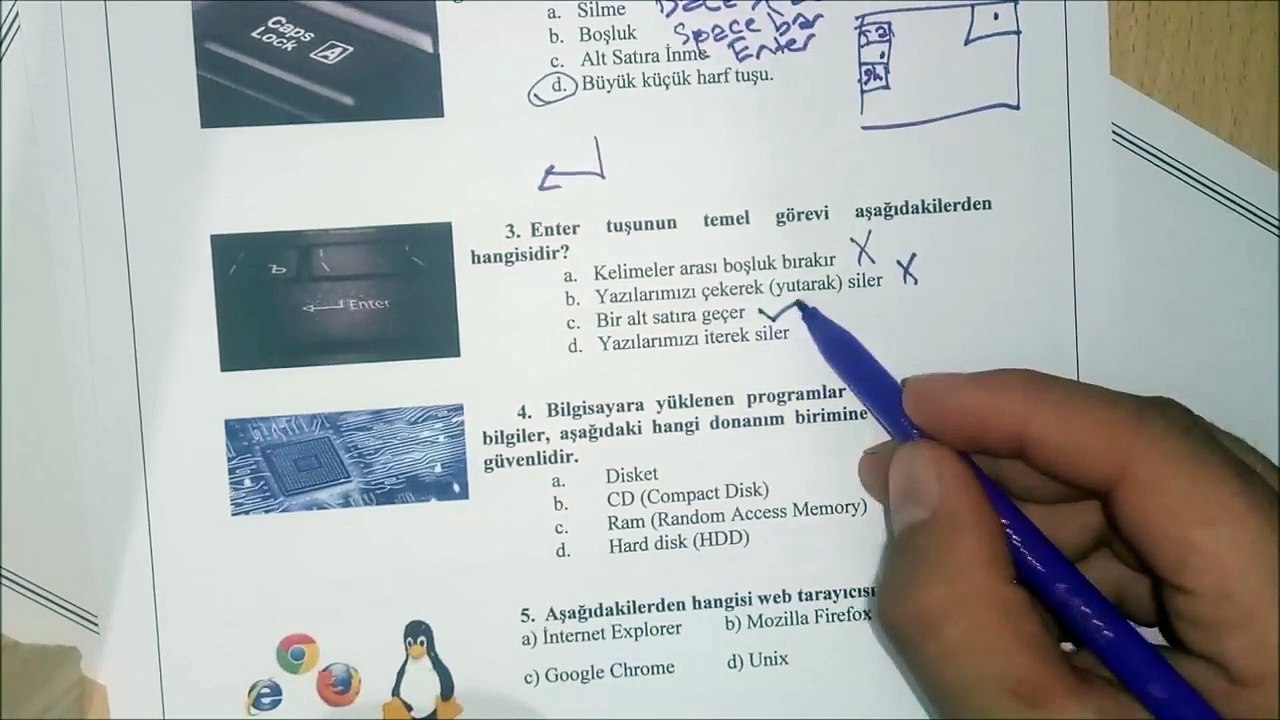 Caps
Lock A
a. Silme
b. Boşluk Space bar
c. Alt Satıra İnme Enter
d. Büyük küçük harf tuşu.
3. Enter tuşunun temel görevi aşağıdakilerden
hangisidir?
Enter
a. Kelimeler arası boşluk bırakır X
b. Yazılarımızı çekerek (yutarak) siler X
c. Bir alt satıra geçer
d. Yazılarımızı iterek siler
4. Bilgisayara yüklenen programlar
bilgiler, aşağıdaki hangi donanım birimine
güvenlidir.
a. Disket
b. CD (Compact Disk)
c. Ram (Random Access Memory)
d. Hard disk (HDD)
5. Aşağıdakilerden hangisi web tarayıcısı
a) İnternet Explorer b) Mozilla Firefox
c) Google Chrome d) Unix